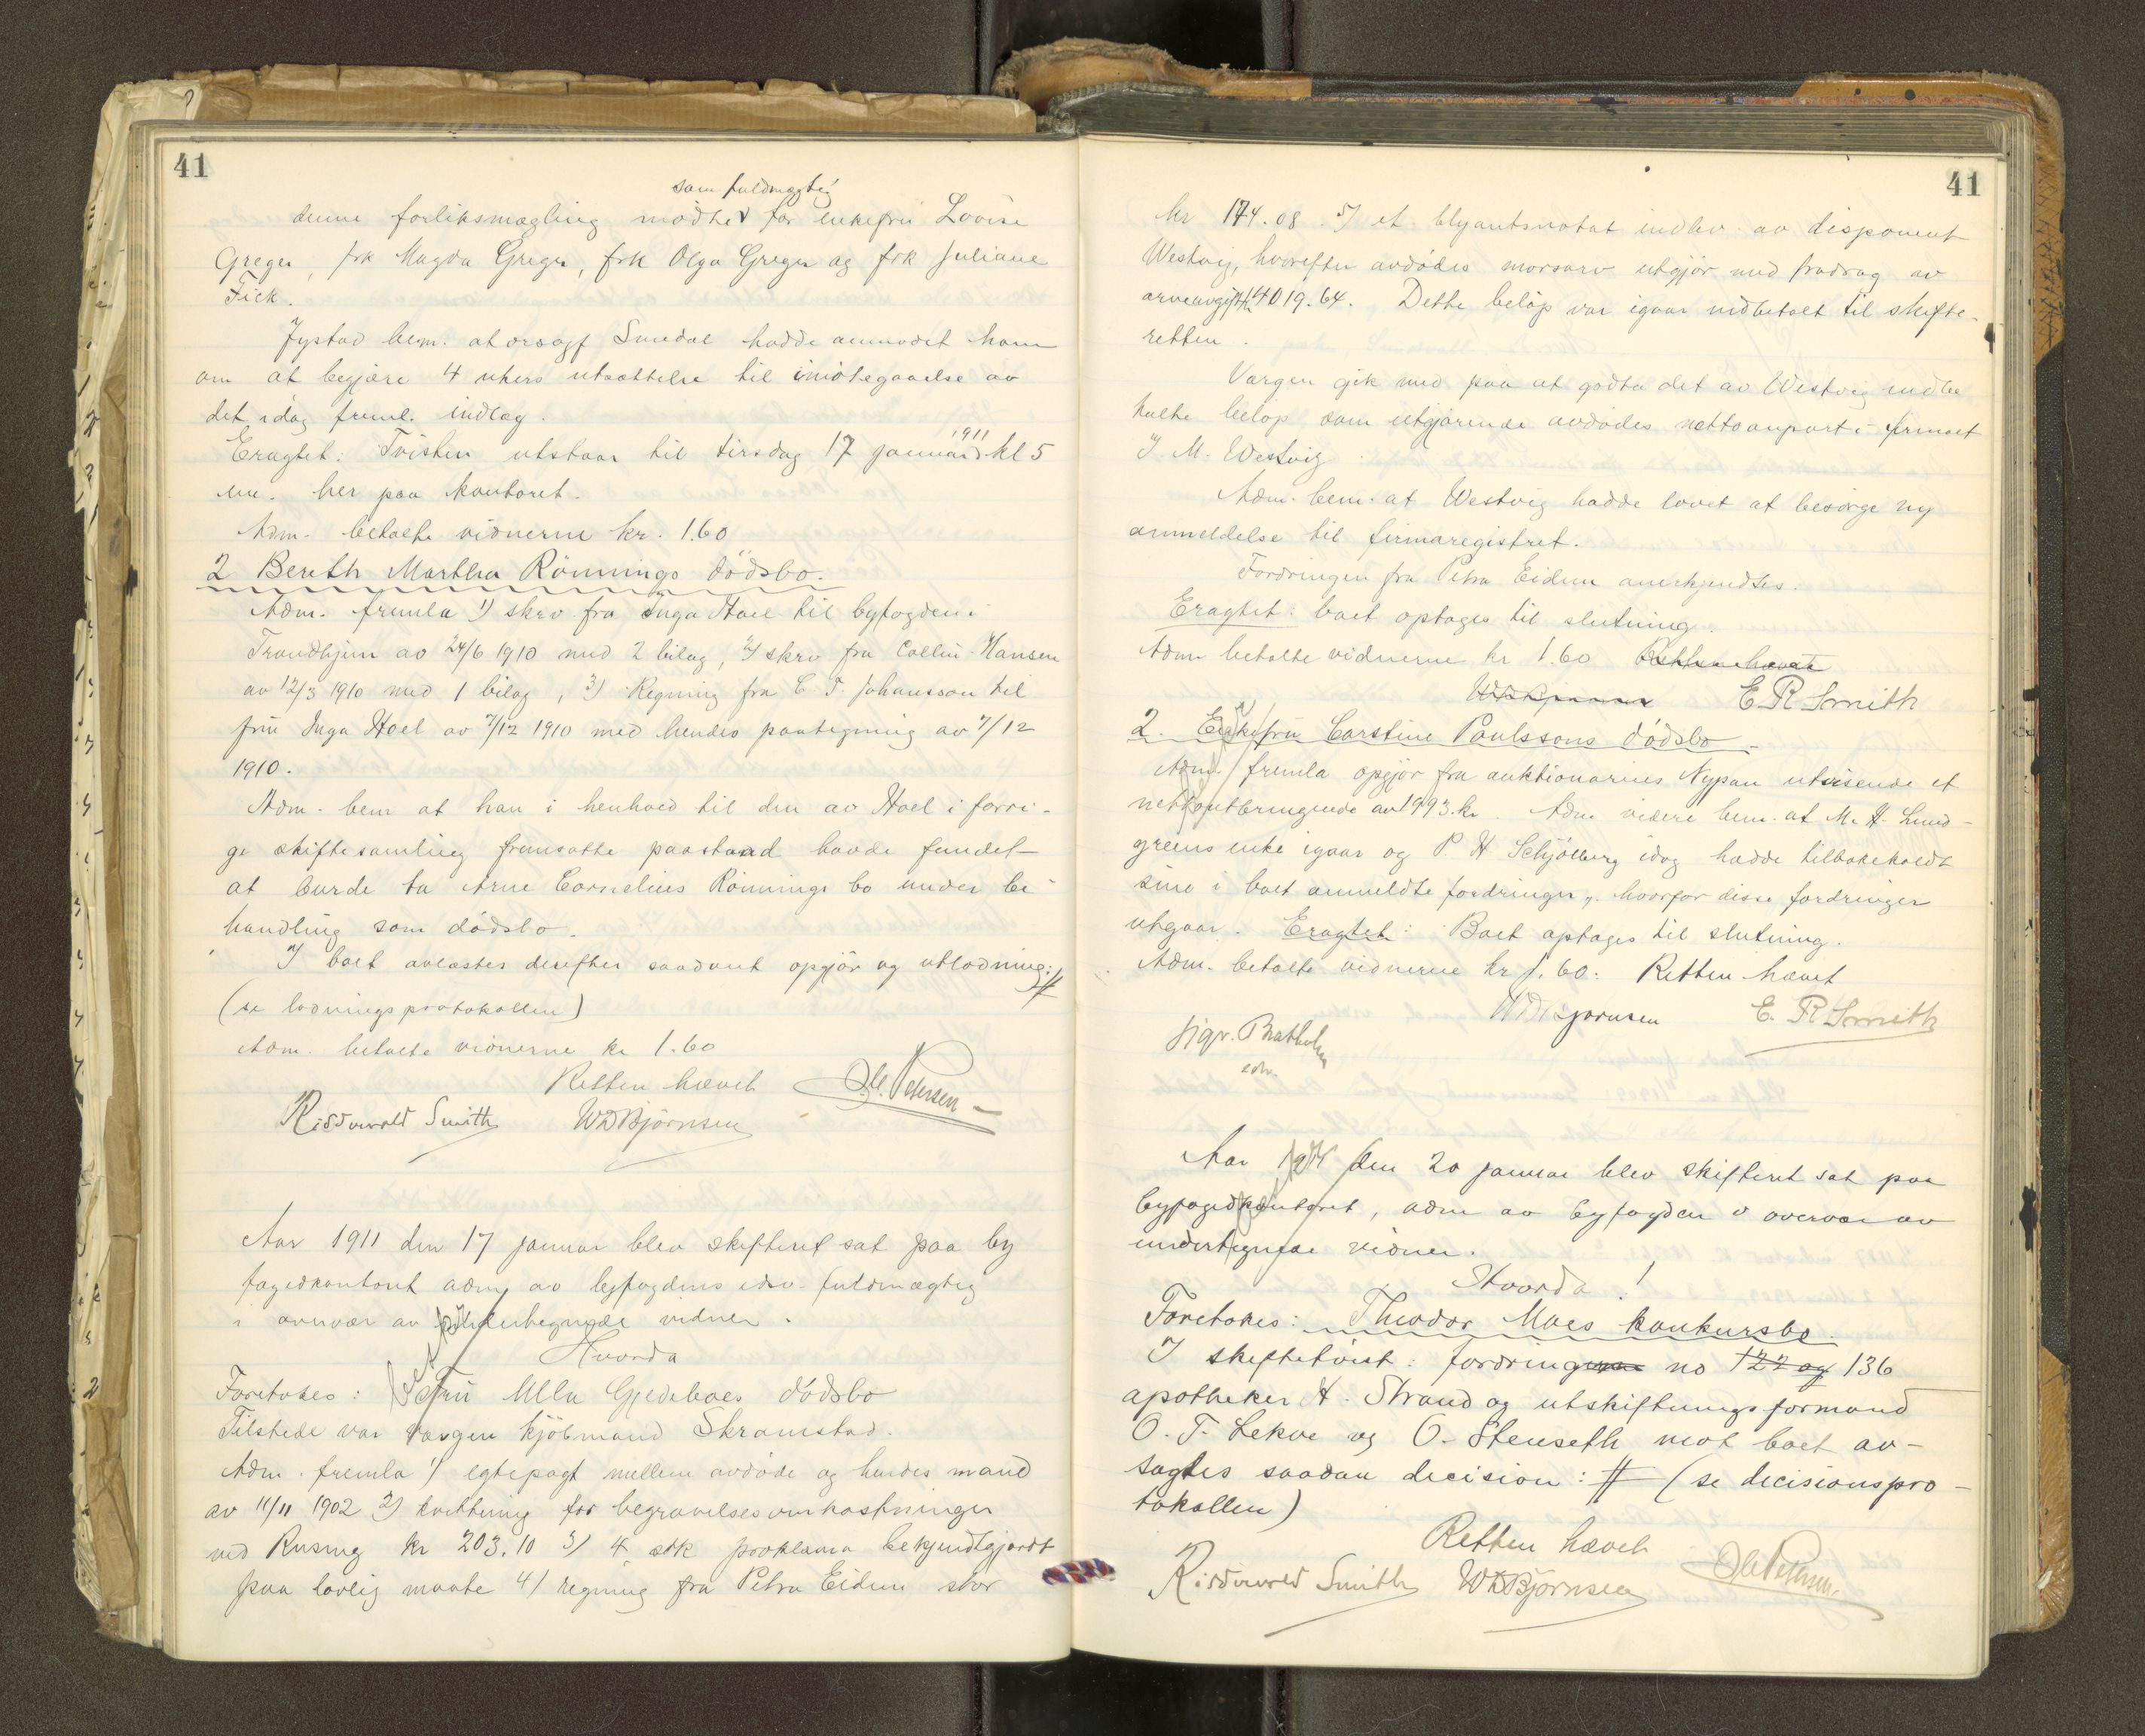 41
som fuldmægtig
denne forliksmægling mødte for enkefru Lovise
Greger, frk Magda Greger, frk Olga Greger og frk Juliane
Fick.
Jystad bem. at orsagf Smedal hadde anmodet ham
om at begjære 4 ukers utsættelse til imøtegaaelse av
det idag freml. indlæg.
Eragtet: Tvisten utstaar til tirsdag 17 januar 1911 kl 5
em. her paa kontoret.
Adm. betalte vidnerne kr. 1.60
2 Bereth Martha Rönnings dödsbo.
Adm. fremla 1) skrv fra Inga Hoel til byfogden i
Trondhjem av 24/6 1910 med 2 bilag, 2) skrv fra Collin Hansen
av 12/3 1910 med 1 bilag, 3) Regning fra C. F. Johansson til
fru Inga Hoel av 7/12 1910 med hendes paategning av 7/12
1910.
Adm. bem at han i henhold til den av Hoel i forri-
ge skiftesamling fremsatte paastand havde fundet
at burde ta Arne Cornelius Rönnings bo under be-
handling som dödsbo.
I boet avlæstes derefter saadant opgjör og utlodning: #
(se lodningsprotokollen)
Adm. betalte vidnerne kr 1.60
Retten hævet
Ole Petersen
Risdvald Smith WDBjörnsen
Aar 1911 den 17 januar blev skifteret sat paa by
fogedkontoret adm av byfogdens edsv. fuldmægtig
i overvær av undertegnede vidner.
Hvorda
Foretokes: Fru Ulla Gjedeboes dödsbo
Tilstede var værgen kjöbmand Skramstad.
Adm. fremla 1) egtepagt mellem avdöde og hendes mand
av 11/11 1902 2) kvittering for begravelsesomkostninger
ved Rusing kr 203.10 3) 4 stk proklama bekjendtgjordt
paa lovlig maate 4) regning fra Petra Eidem stor
41
kr 174.08. 5) et blyantsnotat indlev. av disponent
Westvig, hvorefter avdödes morsarv utgjör med fradrag av
arveavgift kr 4019.64. Dette belöp var igaar indbetalt til skifte-
retten.
Værgen gik med paa at godta det av Westvig indbe
talte belöp som utgjörende avdödes nettoanpart i firmaet
J. M. Westvig
Adm. bem. at Westvig hadde lovet at besörge ny
anmeldelse til firmaregistret.
Fordringen fra Petra Eidem anerkjendtes.
Eragtet: boet optages til slutning.
Adm betalte vidnerne kr 1.60 Retten hævet
WDBjörnsen E R Smith
2. Enkefru Carstine Paulssons dödsbo.
Adm. fremla opgjör fra auktionarius Nypan utvisende et
nettoutbringende av 1993. kr. Adm videre bem. at M. H. Lund-
greens enke igaar og P. H Schjölberg idag hadde tilbakekaldt
sine i boet anmeldte fordringer, hvorfor disse fordringer
utgaar. Eragtet: Boet optages til slutning.
Adm. betalte vidnerne kr 1.60. Retten hævet
WDBjörnsen E. R Smith
Sigv. Bratholm
edsv.
Aar 1911 den 20 januar blev skifteret sat paa
byfogedkontoret, adm av byfogden i overvær av
undertegnede vidner.
Hvorda!
Foretokes: Theodor Moes konkursbo.
I skiftetvist: fordring no 122 og 136
apotheker H. Strand og utskiftningsformand
O. T. Lekve og O. Stenseth mot boet av-
sagdes saadan decision: # (se decisionspro-
tokollen)
Retten hævet
Risdvald Smith WDBjörnsen Ole Petersen